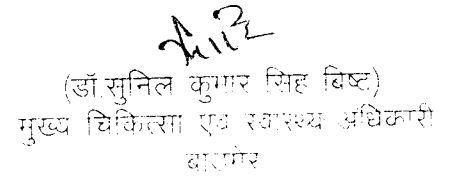 (डॉ.सुनिल कुमार सिंह बिष्ट)
मुख्य चिकित्सा एवं स्वास्थ्य अधिकारी
बाडमेर